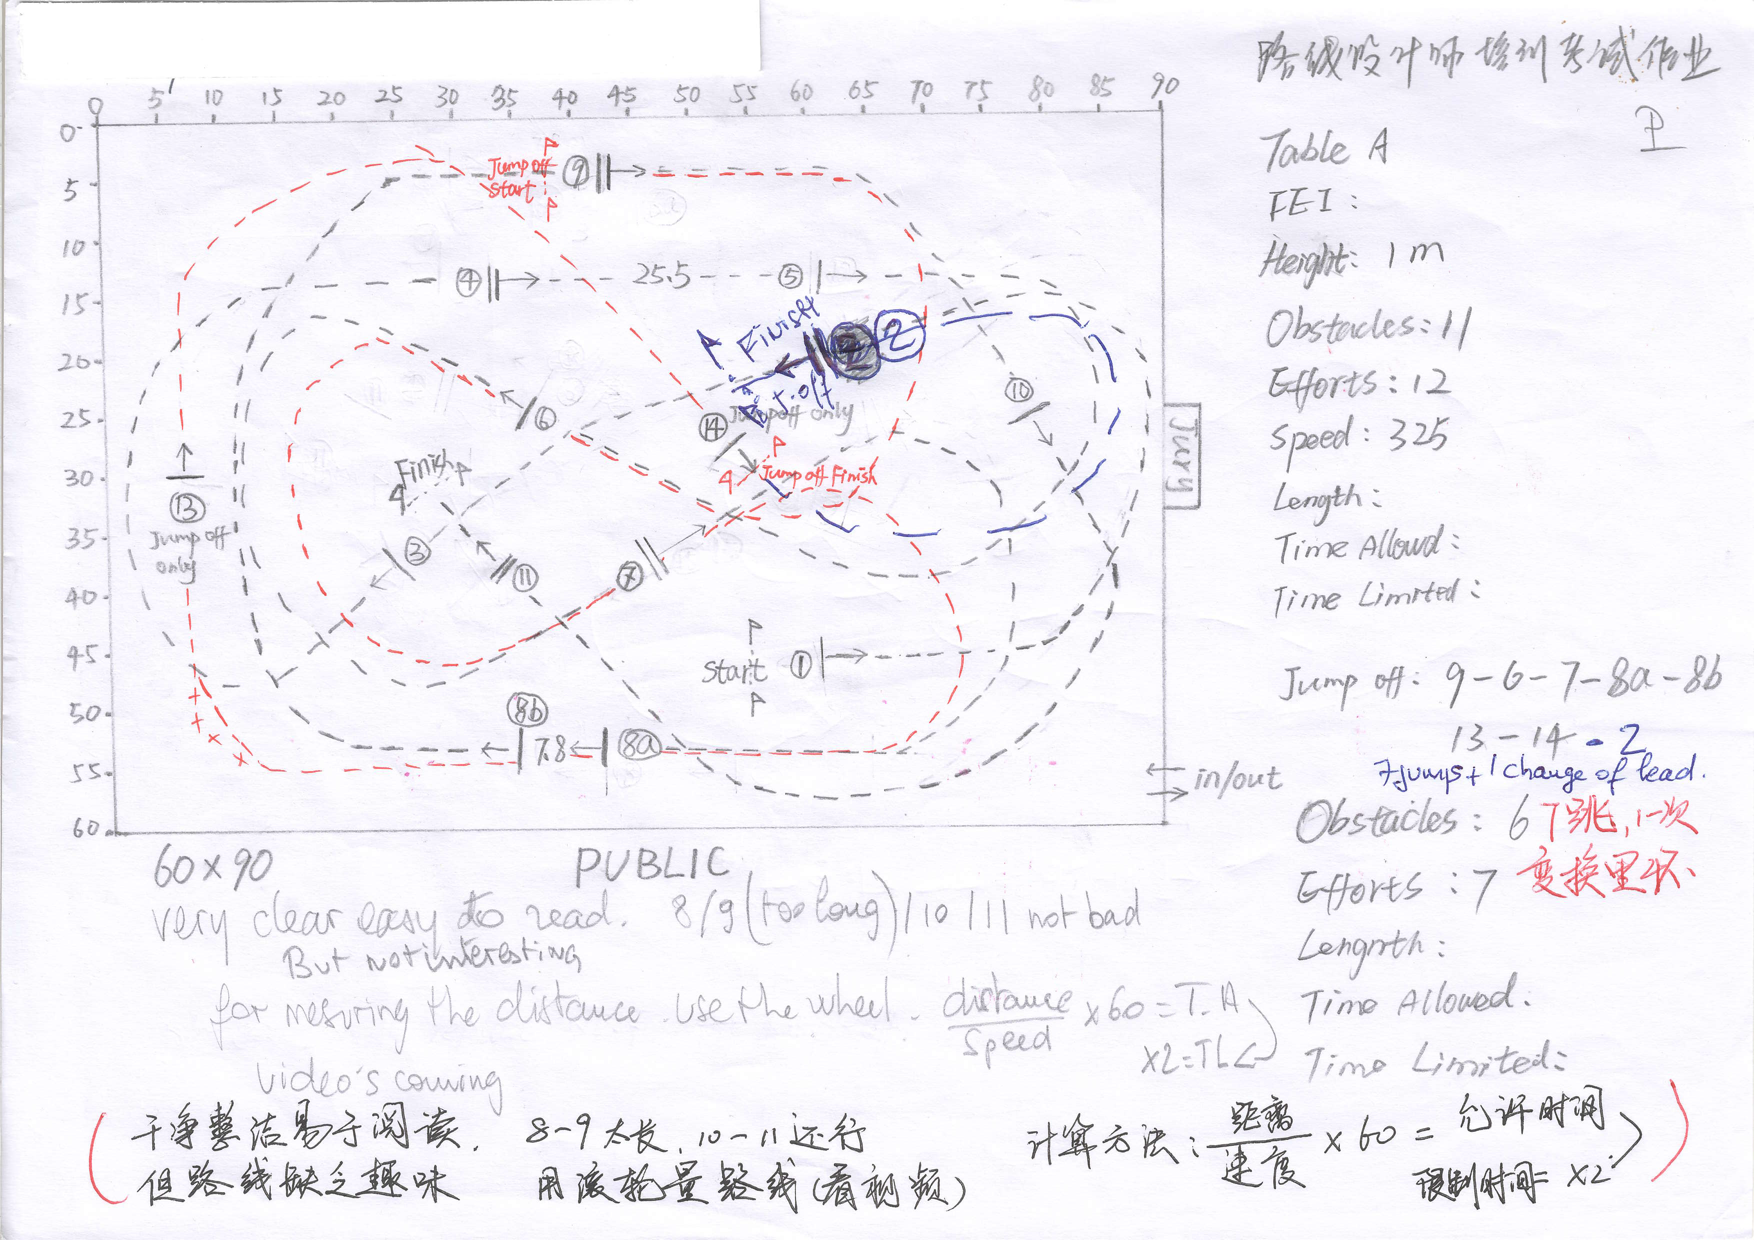 路线设计师培训考试作业
0 5 10 15 20 25 30 35 40 45 50 55 60 65 70 75 80 85 90
0
5
10
15
20
25
30
35
40
45
50
55
60
Jump off
start
9
4
25.5
5
Finish
2
2
J.off
Jump off only
10
6
14
Finish
Jump off Finish
13
Jump off
only
3
11
7
Start
1
8b
7.8
8a
Jury
in/out
60×90
PUBLIC
Table A
FEI:
Height: 1m
Obstacles: 11
Efforts: 12
Speed: 325
Length:
Time Allowd:
Time Limited:
Jump off: 9-6-7-8a-8b
13-14-2
7 jumps + 1 change of lead.
Obstacles: 6 7跳,1次
Efforts: 7 变换里怀
Lengnth:
Time Allowed:
Time Limited:
very clear easy to read. 8/9 (too long)/10/11 not bad
But not interesting
for mesuring the distance. use the wheel. distance/speed ×60=T.A
×2=TL
video's coming
干净整洁易于阅读. 8-9太长,10-11还行
但路线缺乏趣味 用滚轮量路线(看视频)
计算方法: 距离/速度 ×60=允许时间
限制时间= ×2